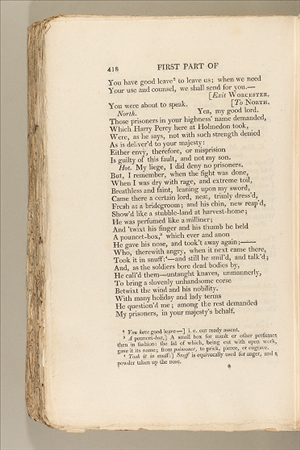 418 FIRST PART OF
You have good leave³ to leave us; when we need
Your use and counsel, we shall send for you.—
[Exit WORCESTER.
You were about to speak. [To NORTH.
North. Yea, my good lord.
Those prisoners in your highness' name demanded,
Which Harry Percy here at Holmedon took,
Were, as he says, not with such strength denied
As is deliver'd to your majesty:
Either envy, therefore, or misprision
Is guilty of this fault, and not my son.
Hot. My liege, I did deny no prisoners.
But, I remember, when the fight was done,
When I was dry with rage, and extreme toil,
Breathless and faint, leaning upon my sword,
Came there a certain lord, neat, trimly dress'd,
Fresh as a bridegroom; and his chin, new reap'd,
Show'd like a stubble-land at harvest-home;
He was perfumed like a milliner;
And 'twixt his finger and his thumb he held
A pouncet-box, which ever and anon
He gave his nose, and took't away again;——
Who, therewith angry, when it next came there,
Took it in snuff:—and still he smil'd, and talk'd;
And, as the soldiers bore dead bodies by,
He call'd them—untaught knaves, unmannerly,
To bring a slovenly unhandsome corse
Betwixt the wind and his nobility.
With many holiday and lady terms
He question'd me; among the rest demanded
My prisoners, in your majesty's behalf.
You have good leave—] i. e. our ready assent.
A pouncet-box,] A small box for musk or other perfumes
then in fashion: the lid of which, being cut with open work,
gave it its name; from poinsoner, to prick, pierce, or engrave.
Took it in snuff:] Snuff is equivocally used for anger, and a
powder taken up the nose.